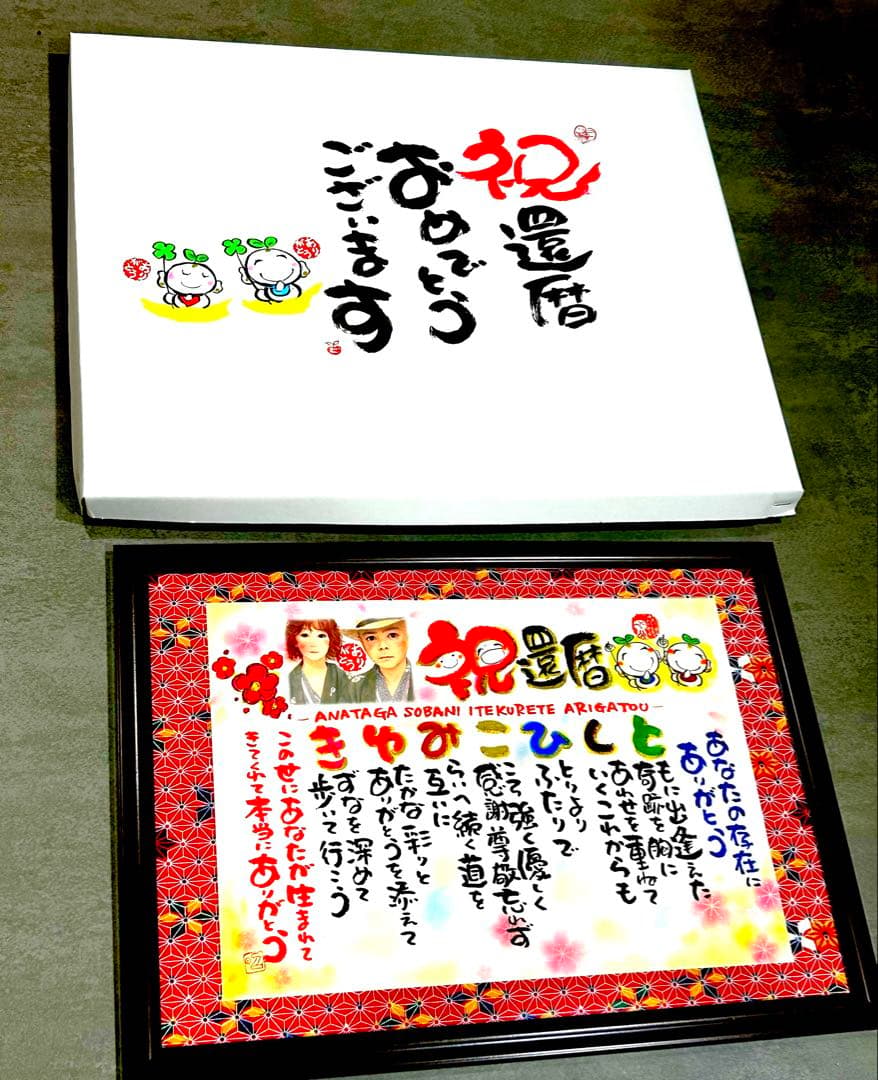 祝還暦
おめでとう
ございます
ありがとう
ありがとう
祝還暦
ありがとう
ありがとう
— ANATAGA SOBANI ITEKURETE ARIGATOU —
あなたの存在に
ありがとう
ともに出逢えた
奇跡を胸に
しあわせを重ねて
いくこれからも
ひとりより
ふたりで
ここで強く優しく
感謝尊敬忘れず
みらいへ続く道を
互いに
ゆたかな彩りと
ありがとうを添えて
きずなを深めて
歩いて行こう
この世にあなたが生まれて
きてくれて本当にありがとう